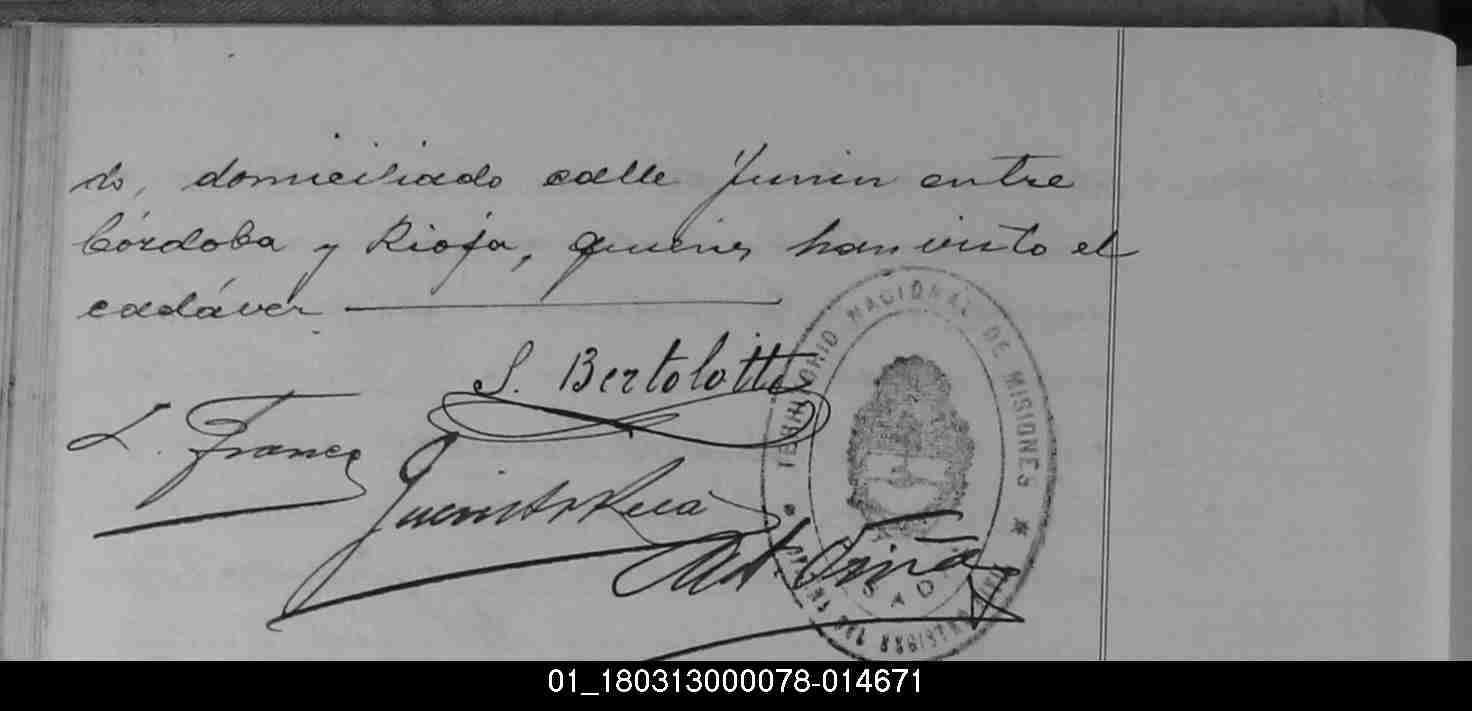 do, domiciliado calle Junin entre
Córdoba y Rioja, quienes han visto el
cadáver
S. Bertolotti
L. Franco
TERRITORIO NACIONAL DE MISIONES
01_180313000078-014671